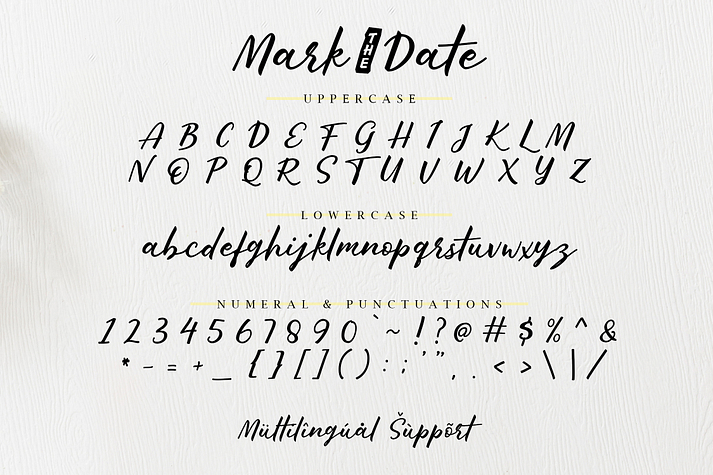 Mark THE Date
UPPERCASE
A B C D E F G H I J K L M
N O P Q R S T U V W X Y Z
LOWERCASE
abcdefghijklmnopqrstuvwxyz
NUMERAL & PUNCTUATIONS
1 2 3 4 5 6 7 8 9 0 ` ~ ! ? @ # $ % ^ &
* - = + _ { } [ ] ( ) : ; ' " , . < > \ | /
Mültîlîngúål Šùppõrt